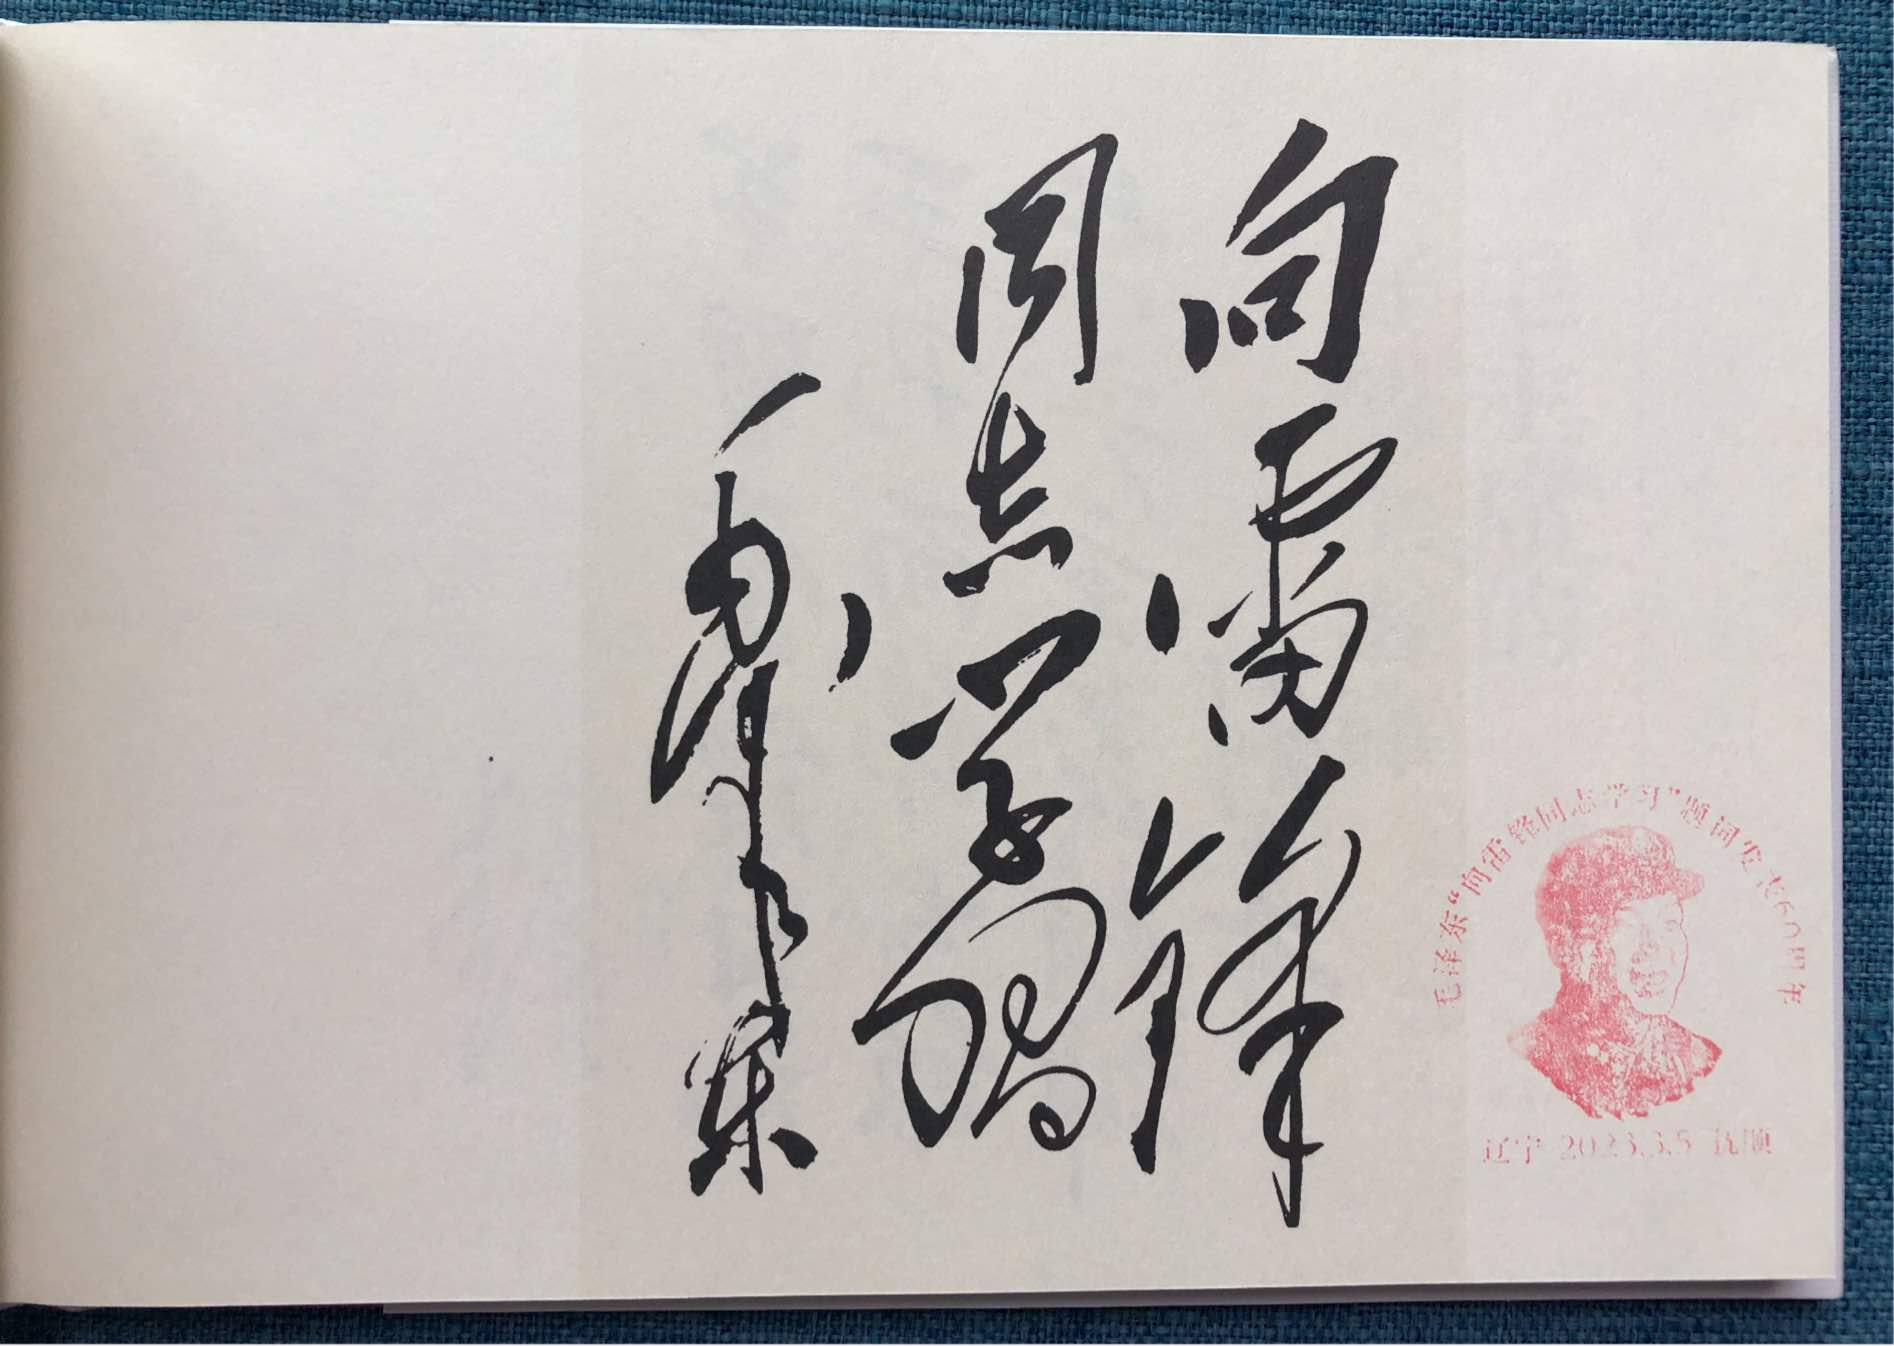 向雷锋
同志学习
毛泽东
毛泽东“向雷锋同志学习”题词发表60周年
辽宁 2023.3.5 抚顺